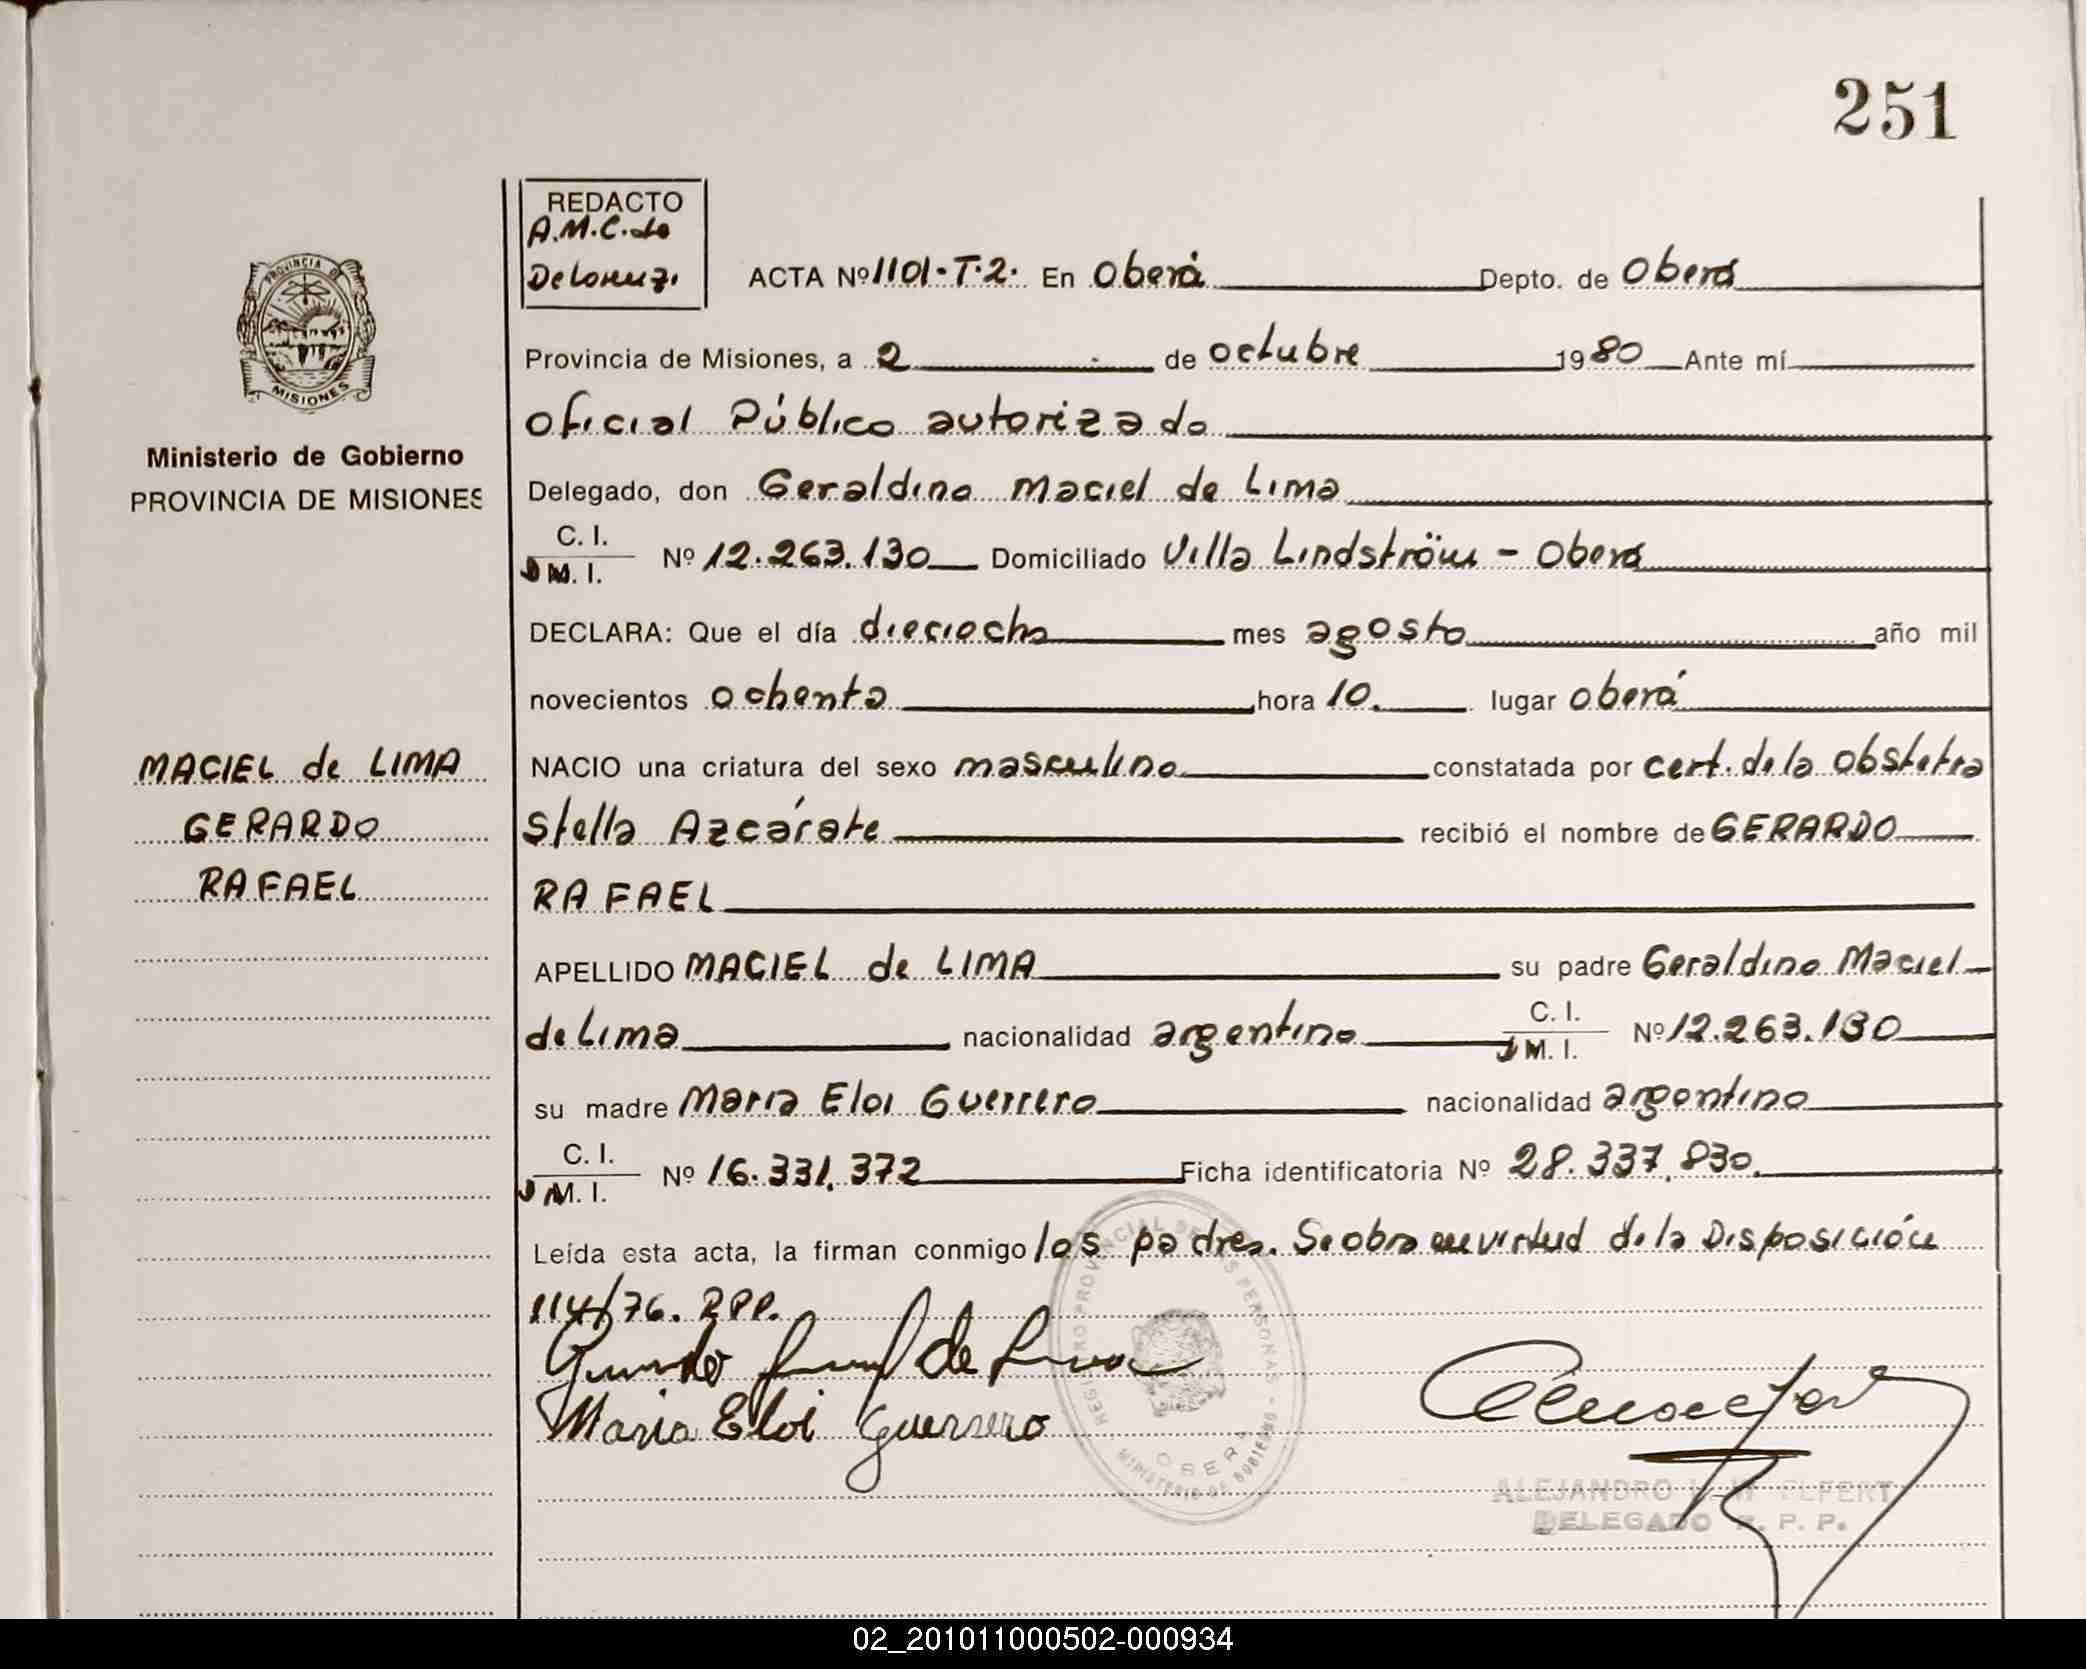 251
REDACTO
A.M.C. de
Delorenzi
PROVINCIA DE
MISIONES
ACTA Nº 1101-T.2. En Oberá Depto. de Oberá
Provincia de Misiones, a 2 de octubre 1980 Ante mí
Oficial Público autorizado
Ministerio de Gobierno
PROVINCIA DE MISIONES
Delegado, don Geraldino Maciel de Lima
C. I.
M. I. Nº 12.263.130 Domiciliado Villa Lindström - Oberá
DECLARA: Que el día dieciocho mes agosto año mil
novecientos ochenta hora 10. lugar Oberá
MACIEL de LIMA
GERARDO
RAFAEL
NACIO una criatura del sexo masculino constatada por cert. de la obstetra
Stella Azcárate recibió el nombre de GERARDO
RAFAEL
APELLIDO MACIEL de LIMA su padre Geraldino Maciel
de Lima nacionalidad argentino C. I.
M. I. Nº 12.263.130
su madre Maria Eloi Guerrero nacionalidad argentino
C. I.
M. I. Nº 16.331.372 Ficha identificatoria Nº 28.337.830.
Leída esta acta, la firman conmigo los padres. Se obra en virtud de la Disposición
114/76. RPP.
de Lima
Maria Eloi Guerrero
REGISTRO PROVINCIAL DE LAS PERSONAS
OBERA
MINISTERIO DE GOBIERNO
ALEJANDRO
DELEGADO R. P. P.
02_201011000502-000934